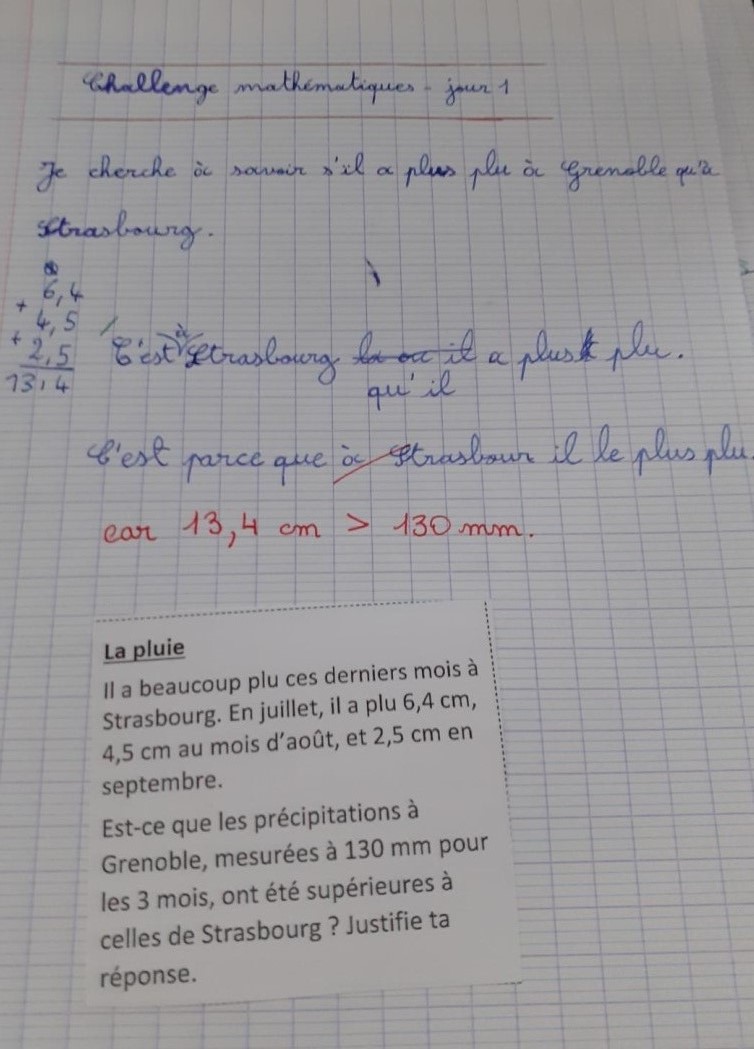 Challenge mathématiques - jour 1
Je cherche à savoir s'il a plus plu à Grenoble qu'à
Strasbourg.
6,4
+ 4,5
+ 2,5
13,4
C'est à Strasbourg là où il a plus plu.
qu'il
C'est parce que à Strasbour il le plus plu.
car 13,4 cm > 130 mm.
La pluie
Il a beaucoup plu ces derniers mois à
Strasbourg. En juillet, il a plu 6,4 cm,
4,5 cm au mois d'août, et 2,5 cm en
septembre.
Est-ce que les précipitations à
Grenoble, mesurées à 130 mm pour
les 3 mois, ont été supérieures à
celles de Strasbourg ? Justifie ta
réponse.